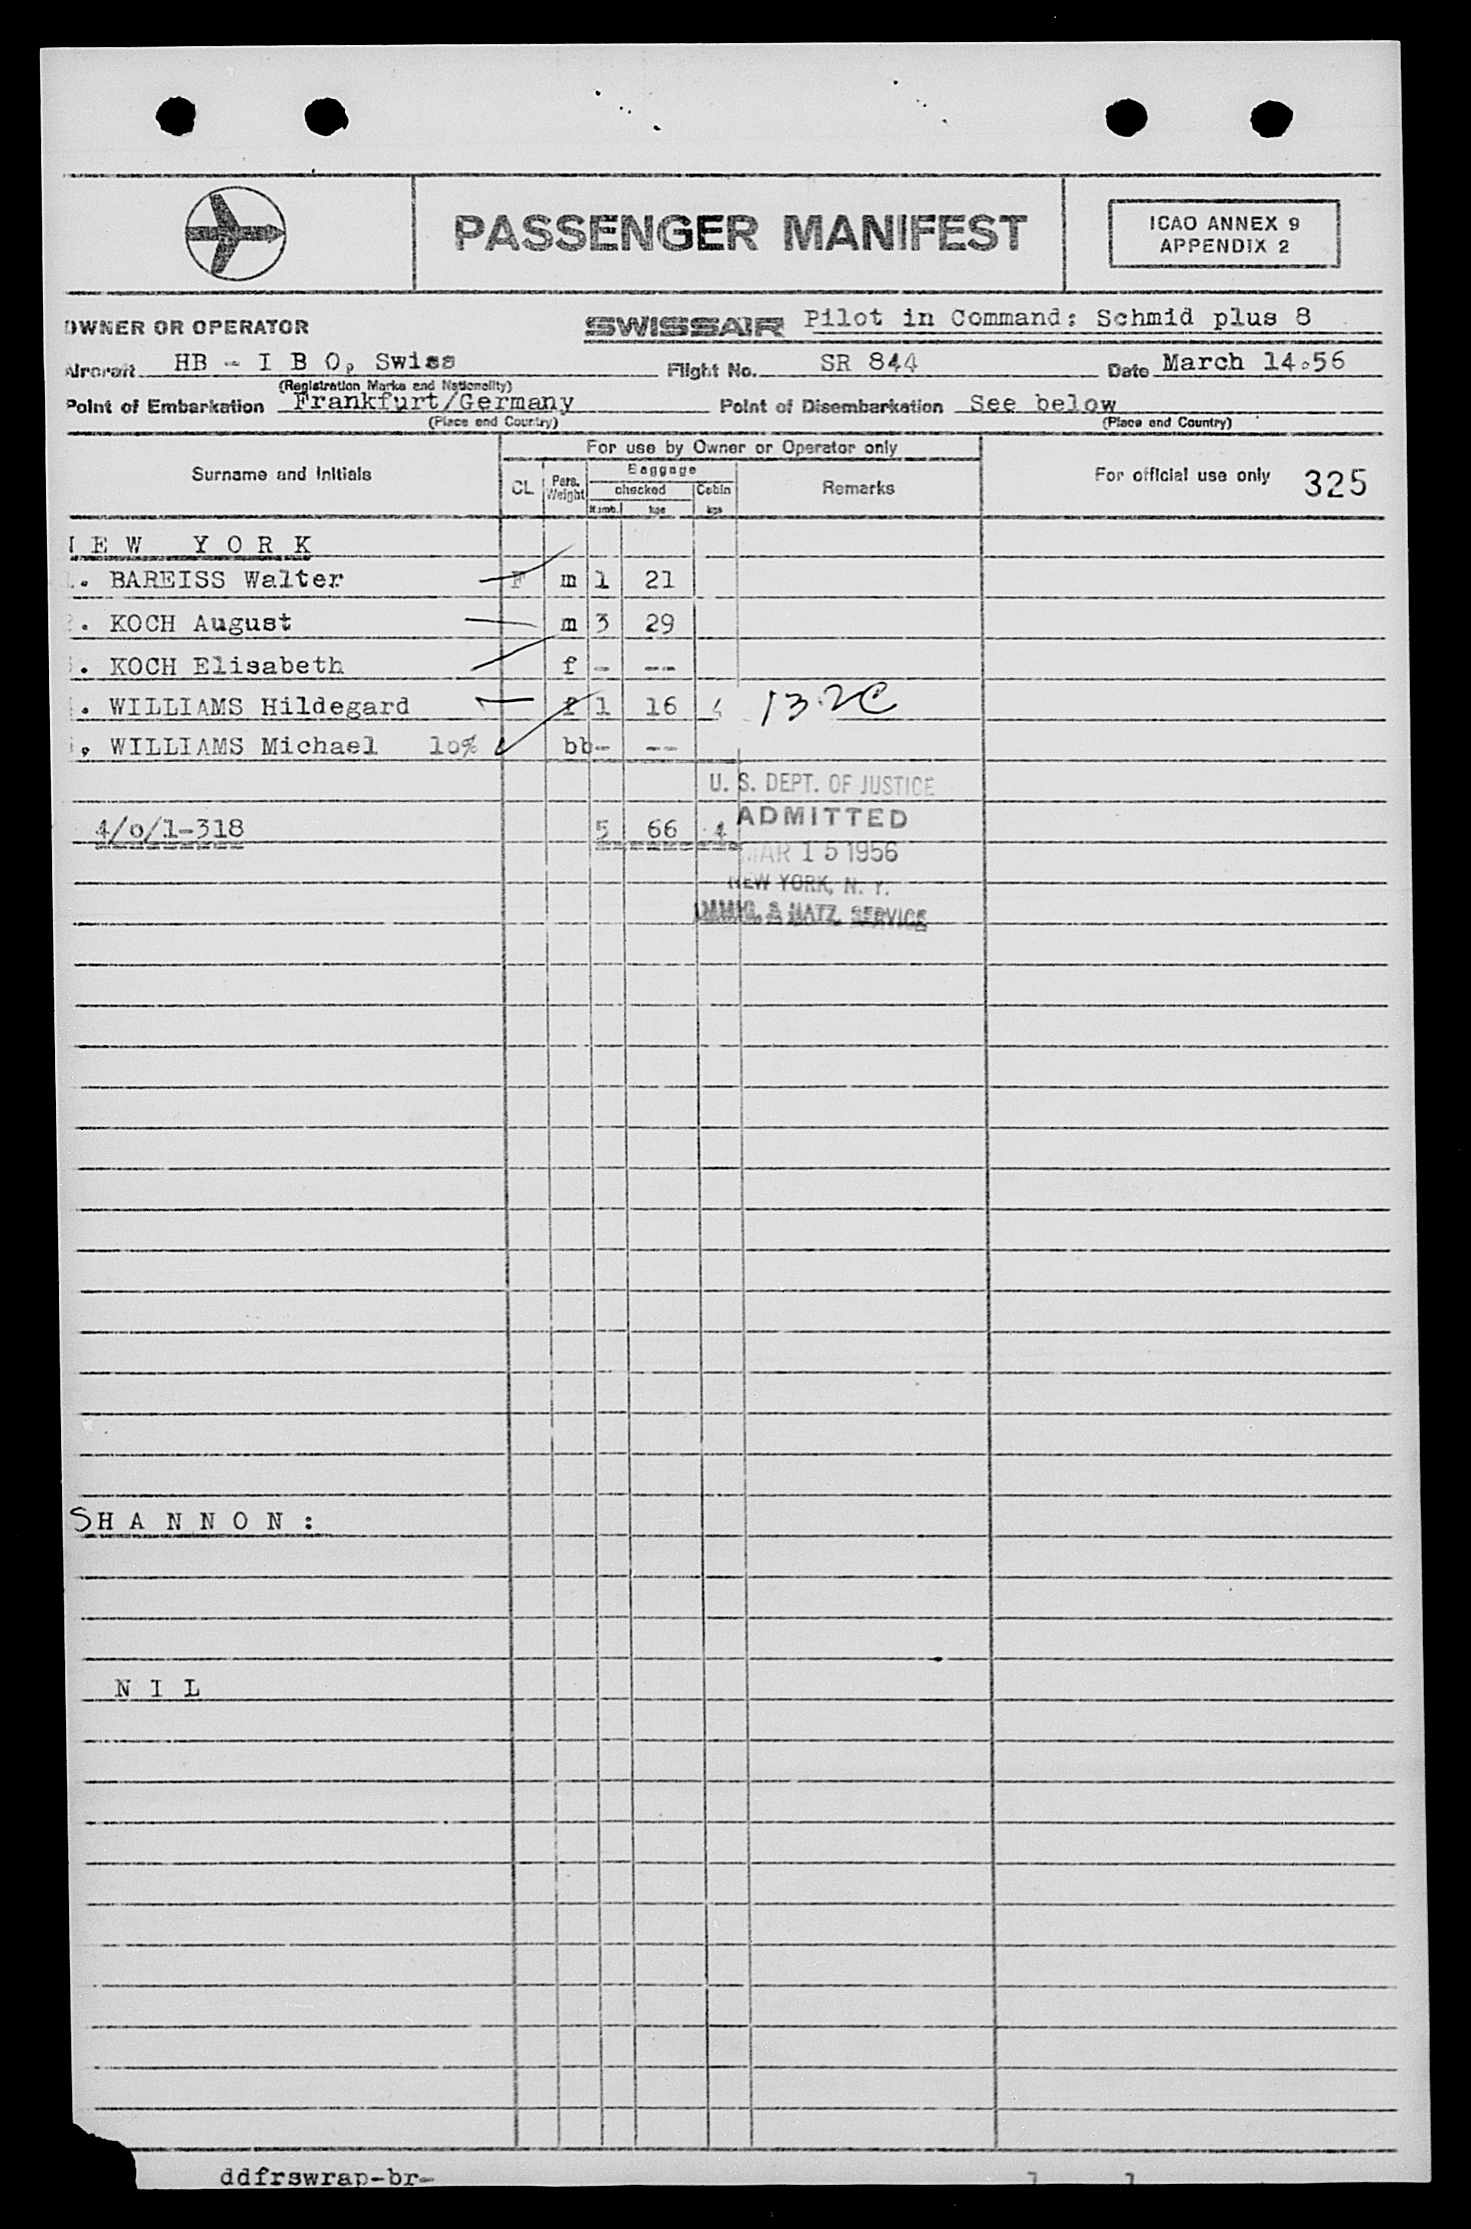 PASSENGER MANIFEST
ICAO ANNEX 9
APPENDIX 2
OWNER OR OPERATOR SWISSAIR Pilot in Command: Schmid plus 8
Aircraft HB - I B O, Swiss Flight No. SR 844 Date March 14.56
(Registration Marks and Nationality)
Point of Embarkation Frankfurt/Germany Point of Disembarkation See below
(Place and Country) (Place and Country)
For use by Owner or Operator only
Surname and Initials CL Pers. Weight Baggage checked Numb. kgs Cabin kgs Remarks For official use only 325
EW YORK
. BAREISS Walter F m 1 21
. KOCH August m 3 29
. KOCH Elisabeth f - --
. WILLIAMS Hildegard f 1 16 4 13.2C
, WILLIAMS Michael 10% bb- --
U. S. DEPT. OF JUSTICE
4/0/1-318 5 66 4 ADMITTED
MAR 15 1956
NEW YORK, N. Y.
IMMIG. & NATZ. SERVICE
SHANNON:
NIL
ddfrswrap-br-
1 1